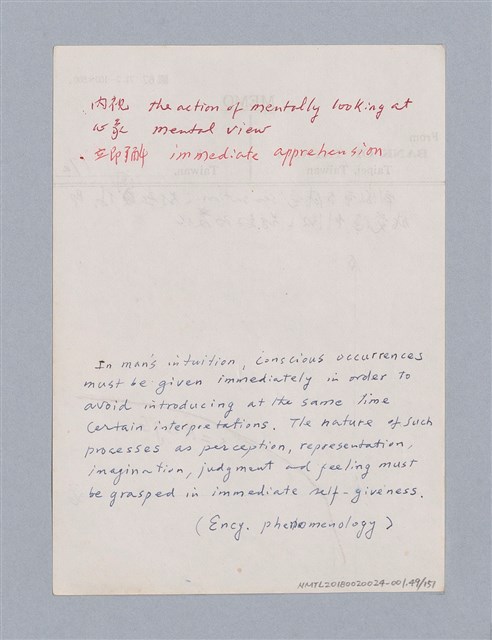 內視 the action of mentally looking at
心象 mental view
. 立即理解 immediate apprehension
In man's intuition, conscious occurrences
must be given immediately in order to
avoid introducing at the same time
certain interpretations. The nature of such
processes as perception, representation,
imagination, judgment and feeling must
be grasped in immediate self-giveness.
(Ency. phenomenology)
NMTL20180020024-001.49/151